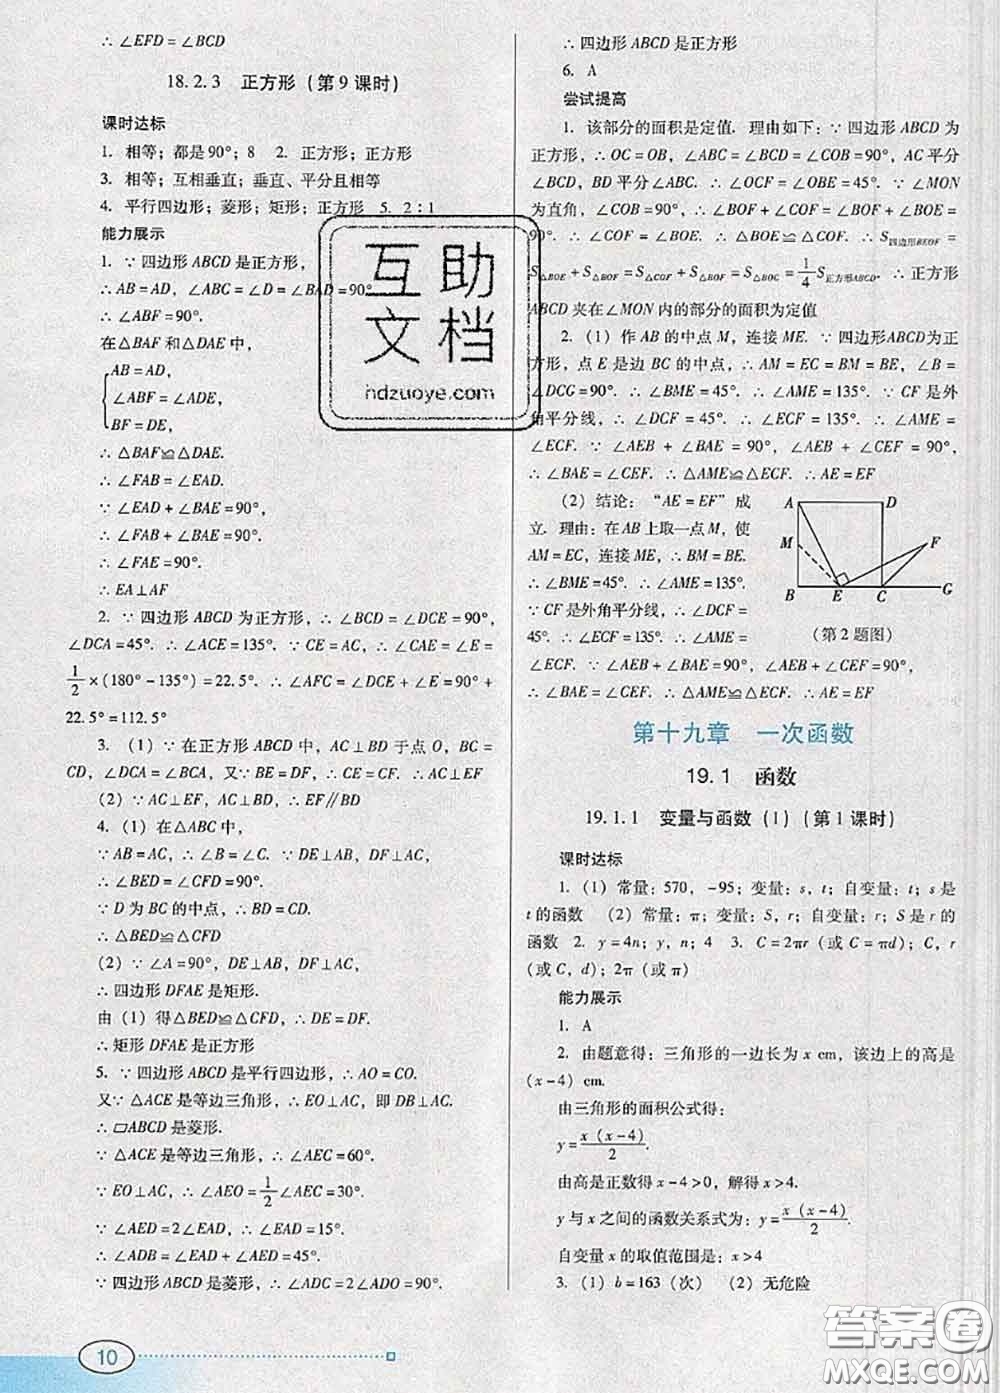 ∴ ∠EFD = ∠BCD
18. 2. 3　正方形 (第 9 课时)
课时达标
1. 相等; 都是 90°; 8　2. 正方形; 正方形
3. 相等; 互相垂直; 垂直、平分且相等
4. 平行四边形; 菱形; 矩形; 正方形　5. 2 : 1
能力展示
1. ∵ 四边形 ABCD 是正方形,
∴ AB = AD, ∠ABC = ∠D = ∠BAD = 90°
∴ ∠ABF = 90°.
在 △BAF 和 △DAE 中,
AB = AD,
∠ABF = ∠ADE,
BF = DE,
∴ △BAF≌△DAE.
∴ ∠FAB = ∠EAD.
∵ ∠EAD + ∠BAE = 90°,
∴ ∠FAB + ∠BAE = 90°.
∴ ∠FAE = 90°.
∴ EA⊥AF
2. ∵ 四边形 ABCD 为正方形, ∴ ∠BCD = ∠DCE = 90°,
∠DCA = 45°. ∴ ∠ACE = 135°. ∵ CE = AC, ∴ ∠CAE = ∠E =
1/2 × (180° − 135°) = 22. 5°. ∴ ∠AFC = ∠DCE + ∠E = 90° +
22. 5° = 112. 5°
3. (1) ∵ 在正方形 ABCD 中, AC⊥BD 于点 O, BC =
CD, ∴ ∠DCA = ∠BCA, 又∵ BE = DF, ∴ CE = CF. ∴ AC⊥EF
(2) ∵ AC⊥EF, AC⊥BD, ∴ EF∥BD
4. (1) 在△ABC 中,
∵ AB = AC, ∴ ∠B = ∠C. ∵ DE⊥AB, DF⊥AC,
∴ ∠BED = ∠CFD = 90°.
∵ D 为 BC 的中点, ∴ BD = CD.
∴ △BED≌△CFD
(2) ∵ ∠A = 90°, DE⊥AB, DF⊥AC,
∴ 四边形 DFAE 是矩形.
由 (1) 得△BED≌△CFD, ∴ DE = DF.
∴ 矩形 DFAE 是正方形
5. ∵ 四边形 ABCD 是平行四边形, ∴ AO = CO.
又∵ △ACE 是等边三角形, ∴ EO⊥AC, 即 DB⊥AC.
∴ ▱ABCD 是菱形.
∵ △ACE 是等边三角形, ∴ ∠AEC = 60°.
∵ EO⊥AC, ∴ ∠AEO = 1/2 ∠AEC = 30°.
∵ ∠AED = 2∠EAD, ∴ ∠EAD = 15°.
∴ ∠ADB = ∠EAD + ∠AED = 45°.
∵ 四边形 ABCD 是菱形, ∴ ∠ADC = 2∠ADO = 90°.
10
∴ 四边形 ABCD 是正方形
6. A
尝试提高
1. 该部分的面积是定值. 理由如下: ∵ 四边形 ABCD 为
正方形, ∴ OC = OB, ∠ABC = ∠BCD = ∠COB = 90°, AC 平分
∠BCD, BD 平分∠ABC. ∴ ∠OCF = ∠OBE = 45°. ∵ ∠MON
为直角, ∠COB = 90°, ∴ ∠BOF + ∠COF = ∠BOF + ∠BOE =
90°. ∴ ∠COF = ∠BOE. ∴ △BOE≌△COF. ∴ S四边形BEOF =
S△BOE + S△BOF = S△COF + S△BOF = S△BOC = 1/4 S正方形ABCD. ∴ 正方形
ABCD 夹在∠MON 内的部分的面积为定值
2. (1) 作 AB 的中点 M, 连接 ME. ∵ 四边形ABCD为正
方形, 点 E 是边 BC 的中点, ∴ AM = EC = BM = BE, ∠B =
∠DCG = 90°. ∴ ∠BME = 45°. ∴ ∠AME = 135°. ∵ CF 是外
角平分线, ∴ ∠DCF = 45°. ∴ ∠ECF = 135°. ∴ ∠AME =
∠ECF. ∵ ∠AEB + ∠BAE = 90°, ∠AEB + ∠CEF = 90°,
∴ ∠BAE = ∠CEF. ∴ △AME≌△ECF. ∴ AE = EF
(2) 结论: “AE = EF” 成
立. 理由: 在 AB 上取一点 M, 使
AM = EC, 连接 ME, ∴ BM = BE.
∴ ∠BME = 45°. ∴ ∠AME = 135°.
∵ CF 是外角平分线, ∴ ∠DCF =
45°. ∴ ∠ECF = 135°. ∴ ∠AME =
∠ECF. ∵ ∠AEB + ∠BAE = 90°, ∠AEB + ∠CEF = 90°,
∴ ∠BAE = ∠CEF. ∴ △AME≌△ECF. ∴ AE = EF
A
D
M
F
B
E
C
G
(第 2 题图)
第十九章　一次函数
19. 1　函数
19. 1. 1　变量与函数 (1) (第 1 课时)
课时达标
1. (1) 常量: 570, −95; 变量: s, t; 自变量: t; s 是
t 的函数　(2) 常量: π; 变量: S, r; 自变量: r; S 是 r 的
函数　2. y = 4n; y, n; 4　3. C = 2πr (或 C = πd); C, r
(或 C, d); 2π (或 π)
能力展示
1. A
2. 由题意得: 三角形的一边长为 x cm, 该边上的高是
(x − 4) cm.
由三角形的面积公式得:
y = x (x − 4)/2.
由高是正数得 x − 4 > 0, 解得 x > 4.
y 与 x 之间的函数关系式为: y = x (x − 4)/2.
自变量 x 的取值范围是: x > 4
3. (1) b = 163 (次)　(2) 无危险
互助
文档
hdzuoye.com
答案圈
MXQE.COM